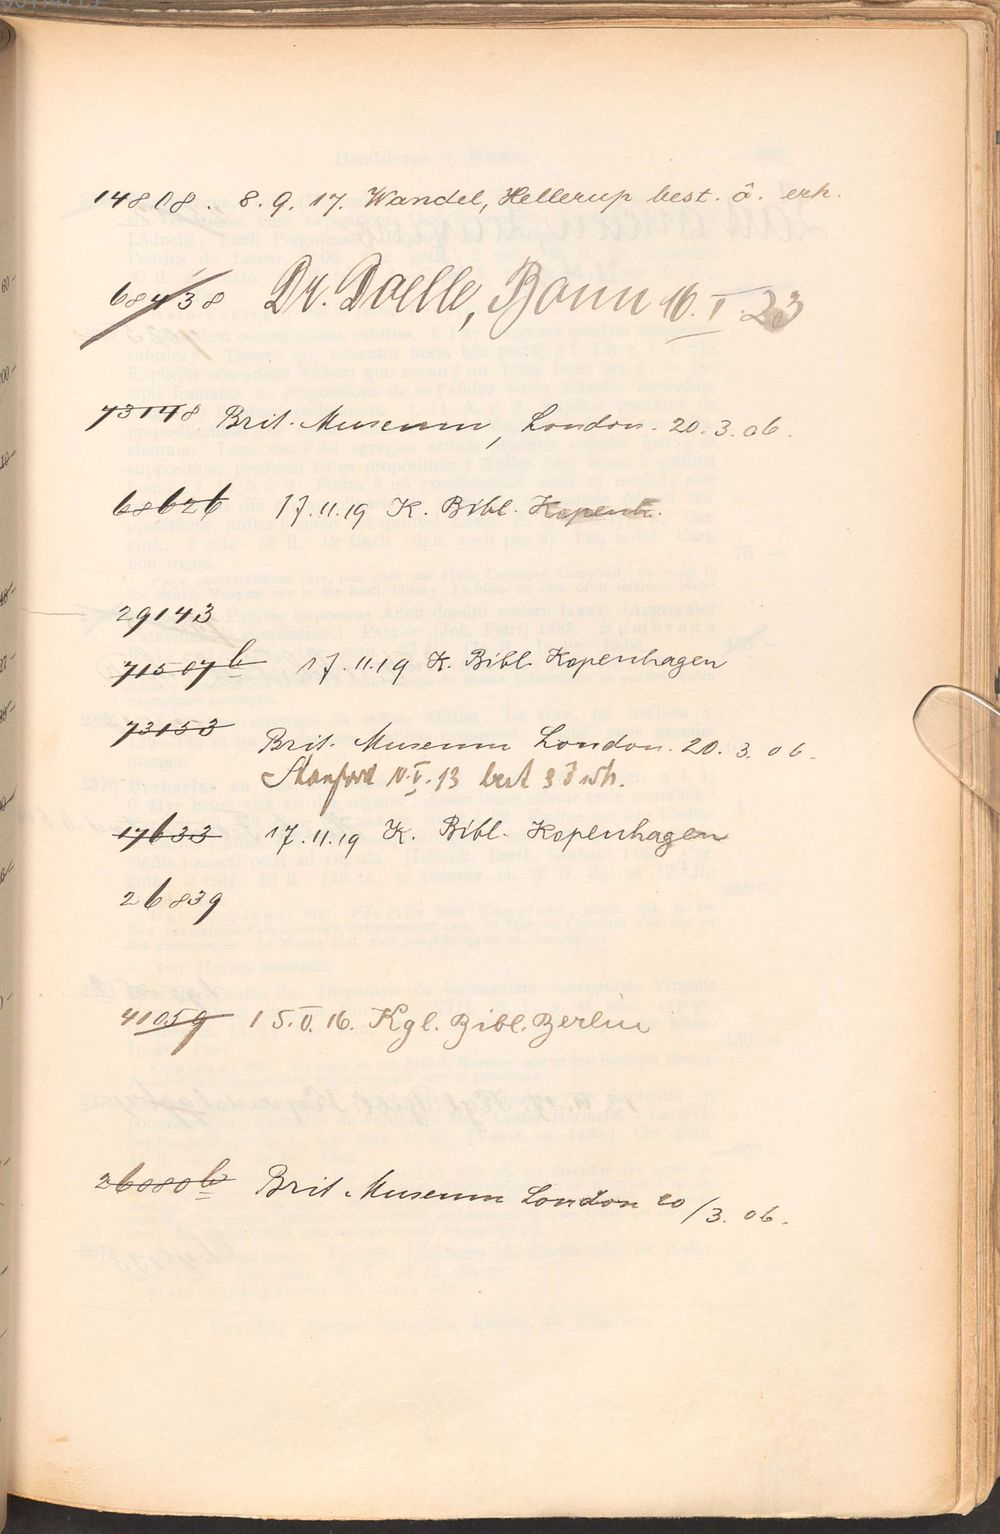 14808. 8.9.17. Wandel, Hellerup best. erh.
68438 Dr. Doelle, Bonn 16. I. 23
73148 Brit. Museum, London. 20.3.06.
68626 17.11.19 K. Bibl. Kopenh.
29143
71507b 17.11.19 K. Bibl. Kopenhagen
73153 Brit. Museum London. 20.3.06.
13 best
17633 17.11.19 K. Bibl. Kopenhagen
26839
41059 15. 16. Kgl. Bibl. Berlin
26080b Brit. Museum London 20/3.06.